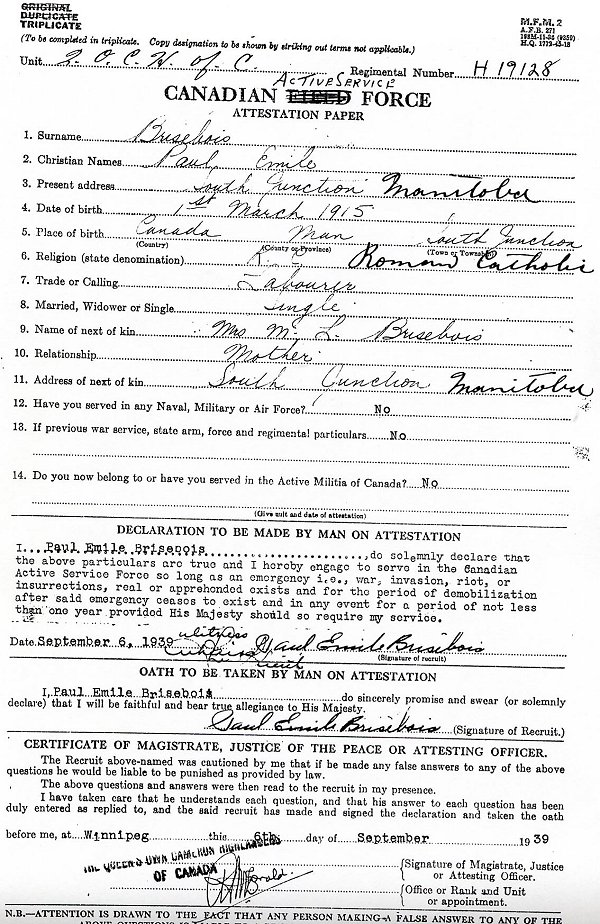 ORIGINAL
DUPLICATE
TRIPLICATE
M.F.M. 2
A.F.B. 271
H.Q. 1772-43-18
(To be completed in triplicate. Copy designation to be shown by striking out terms not applicable.)
Unit Q.O.C.H. of C. Regimental Number H 19128
ACTIVE SERVICE
CANADIAN FIELD FORCE
ATTESTATION PAPER
1. Surname Brisebois
2. Christian Names Paul, Emile
3. Present address South Junction Manitoba
4. Date of birth 1st March 1915
5. Place of birth Canada Man South Junction
(Country) (County or Province) (Town or Township)
6. Religion (state denomination) R. Roman Catholic
7. Trade or Calling Labourer
8. Married, Widower or Single Single
9. Name of next of kin Mrs M. L. Brisebois
10. Relationship Mother
11. Address of next of kin South Junction Manitoba
12. Have you served in any Naval, Military or Air Force? No
13. If previous war service, state arm, force and regimental particulars No
14. Do you now belong to or have you served in the Active Militia of Canada? No
(Give unit and date of attestation)
DECLARATION TO BE MADE BY MAN ON ATTESTATION
I, Paul Emile Brisebois, do solemnly declare that
the above particulars are true and I hereby engage to serve in the Canadian
Active Service Force so long as an emergency i.e., war, invasion, riot, or
insurrections, real or apprehended exists and for the period of demobilization
after said emergency ceases to exist and in any event for a period of not less
than one year provided His Majesty should so require my service.
Date September 6, 1939 Paul Emile Brisebois
(Signature of recruit)
OATH TO BE TAKEN BY MAN ON ATTESTATION
I, Paul Emile Brisebois do sincerely promise and swear (or solemnly
declare) that I will be faithful and bear true allegiance to His Majesty.
Paul Emile Brisebois (Signature of Recruit.)
CERTIFICATE OF MAGISTRATE, JUSTICE OF THE PEACE OR ATTESTING OFFICER.
The Recruit above-named was cautioned by me that if he made any false answers to any of the above
questions he would be liable to be punished as provided by law.
The above questions and answers were then read to the recruit in my presence.
I have taken care that he understands each question, and that his answer to each question has been
duly entered as replied to, and the said recruit has made and signed the declaration and taken the oath
before me, at Winnipeg this 6th day of September 1939
THE QUEEN'S OWN CAMERON HIGHLANDERS
OF CANADA
(Signature of Magistrate, Justice
or Attesting Officer.
(Office or Rank and Unit
or appointment.
N.B.—ATTENTION IS DRAWN TO THE FACT THAT ANY PERSON MAKING A FALSE ANSWER TO ANY OF THE